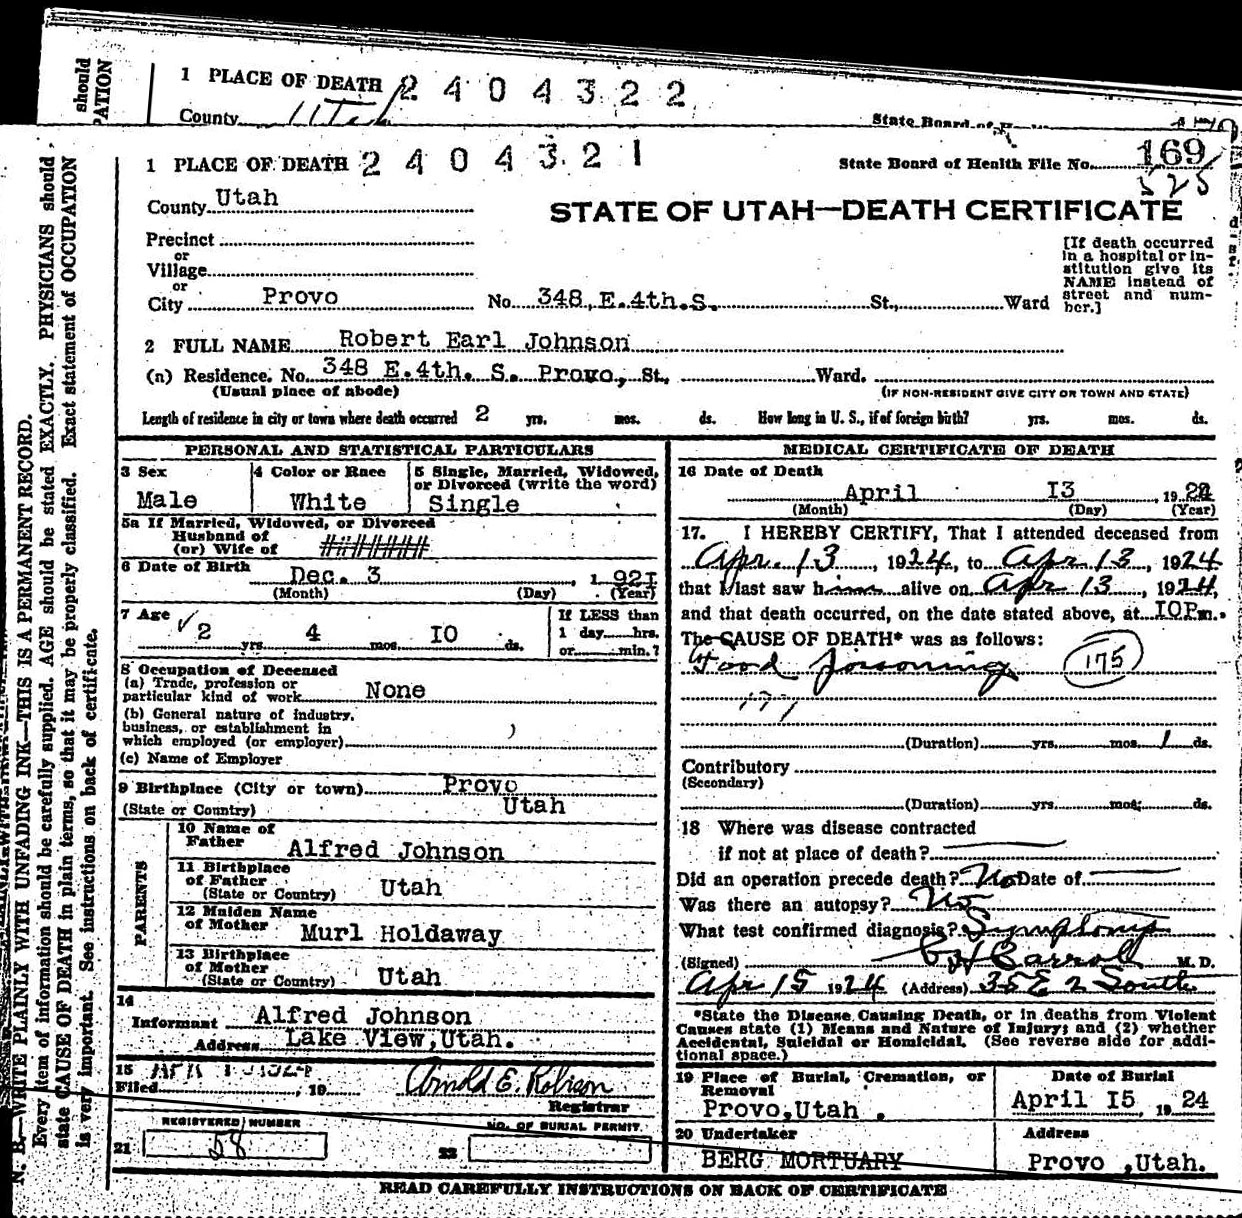 should
PATION
1 PLACE OF DEATH 2404322
County Utah
State Board of
1 PLACE OF DEATH 2404321
State Board of Health File No. 169
525
County Utah
STATE OF UTAH—DEATH CERTIFICATE
Precinct
or
Village
or
City Provo No. 348 E. 4th. S. St., Ward
[If death occurred in a hospital or institution give its NAME instead of street and number.]
2 FULL NAME Robert Earl Johnson
(a) Residence. No. 348 E. 4th. S. Provo, St., Ward.
(Usual place of abode) (IF NON-RESIDENT GIVE CITY OR TOWN AND STATE)
Length of residence in city or town where death occurred 2 yrs. mos. ds. How long in U. S., if of foreign birth? yrs. mos. ds.
PERSONAL AND STATISTICAL PARTICULARS
3 Sex
Male
4 Color or Race
White
5 Single, Married, Widowed, or Divorced (write the word)
Single
5a If Married, Widowed, or Divorced
Husband of
(or) Wife of #######
6 Date of Birth Dec. 3 , 1 92I
(Month) (Day) (Year)
7 Age
2 yrs. 4 mos. IO ds.
If LESS than
1 day hrs.
or min.?
8 Occupation of Deceased
(a) Trade, profession or
particular kind of work None
(b) General nature of industry,
business, or establishment in
which employed (or employer)
(c) Name of Employer
9 Birthplace (City or town) Provo
(State or Country) Utah
PARENTS
10 Name of
Father Alfred Johnson
11 Birthplace
of Father
(State or Country) Utah
12 Maiden Name
of Mother Murl Holdaway
13 Birthplace
of Mother
(State or Country) Utah
14
Informant Alfred Johnson
Address Lake View, Utah.
15
Filed APR 1924, 19 Arnold E. Robison
Registrar
REGISTERED NUMBER
21 58
NO. OF BURIAL PERMIT.
22
MEDICAL CERTIFICATE OF DEATH
16 Date of Death
April I3 , 1924
(Month) (Day) (Year)
17. I HEREBY CERTIFY, That I attended deceased from
Apr. 13, 1924, to Apr 13, 1924
that I last saw him alive on Apr 13, 1924,
and that death occurred, on the date stated above, at IOP m.
The CAUSE OF DEATH* was as follows:
Food poisoning 175
177
(Duration) yrs. mos. 1 ds.
Contributory
(Secondary)
(Duration) yrs. mos. ds.
18 Where was disease contracted
if not at place of death?
Did an operation precede death? No Date of
Was there an autopsy? No
What test confirmed diagnosis? Symptoms
(Signed) Carrol M. D.
Apr 15 1924 (Address) 35 E 2 South
*State the Disease Causing Death, or in deaths from Violent
Causes state (1) Means and Nature of Injury; and (2) whether
Accidental, Suicidal or Homicidal. (See reverse side for addi-
tional space.)
19 Place of Burial, Cremation, or
Removal
Provo, Utah .
Date of Burial
April I5, 1924
20 Undertaker
BERG MORTUARY
Address
Provo ,Utah.
READ CAREFULLY INSTRUCTIONS ON BACK OF CERTIFICATE
N. B.—WRITE PLAINLY WITH UNFADING INK—THIS IS A PERMANENT RECORD.
Every item of information should be carefully supplied. AGE should be stated EXACTLY. PHYSICIANS should
state CAUSE OF DEATH in plain terms, so that it may be properly classified. Exact statement of OCCUPATION
is very important. See instructions on back of certificate.